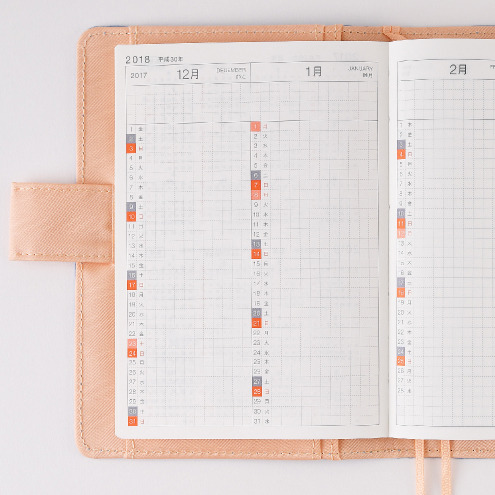 2018 平成30年
2017 12月 DECEMBER 師走
1月 JANUARY 睦月
2月
1 金
2 土
3 日
4 月
5 火
6 水
7 木
8 金
9 土
10 日
11 月
12 火
13 水
14 木
15 金
16 土
17 日
18 月
19 火
20 水
21 木
22 金
23 土
24 日
25 月
26 火
27 水
28 木
29 金
30 土
31 日
1 月
2 火
3 水
4 木
5 金
6 土
7 日
8 月
9 火
10 水
11 木
12 金
13 土
14 日
15 月
16 火
17 水
18 木
19 金
20 土
21 日
22 月
23 火
24 水
25 木
26 金
27 土
28 日
29 月
30 火
31 水
1 木
2 金
3 土
4 日
5 月
6 火
7 水
8 木
9 金
10 土
11 日
12 月
13 火
14 水
15 木
16 金
17 土
18 日
19 月
20 火
21 水
22 木
23 金
24 土
25 日
26 月
27 火
28 水